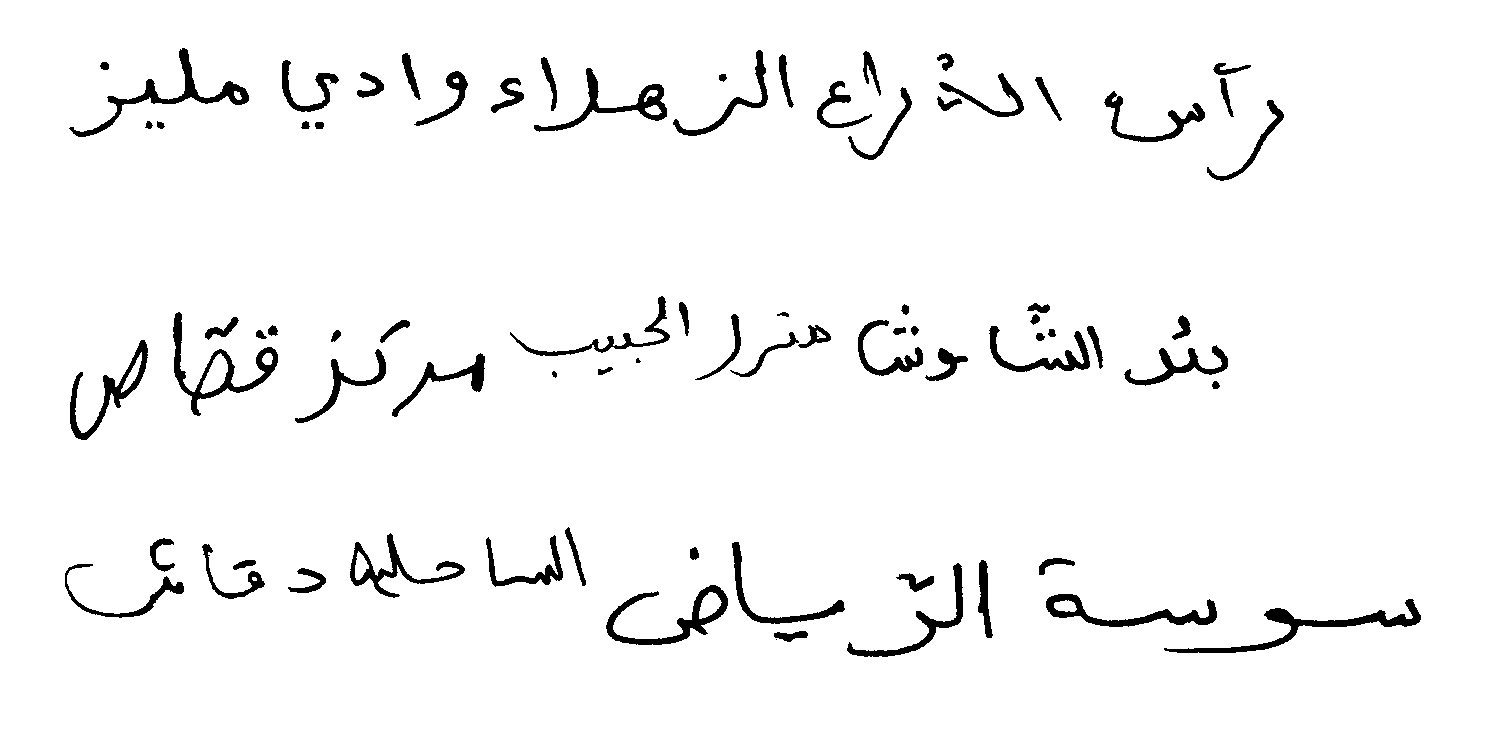 رأس الذراع الزهراء وادي مليز
بئر الشاوش منزل الحبيب مركز قصّاص
سوسة الرّياض الساحلية دقاش